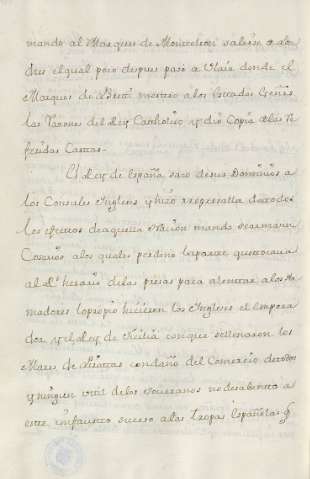 mando al Marques de Monteleon saliese a lo
dres el qual poco despues pasó a Vlaia donde el
Marques de Beretti mostro a los Estados Genes
las razones del Rey Catholico, y dio Copia de las re
feridas Cartas.
El Rey de España saco de sus Dominios a
los Consules Ingleses y hizo rrepresalla de todos
los efectos de aquella Nacion mando se armasen
Corsarios a los quales perdono la parte que tocava
al R.l herario de las presas para alentar a los Ar
madores lo propio hicieron los Ingleses el empera
dor, y el Rey de Sicilia con que se llenaron los
Mares de Piratas con daño del Comercio de todos
y ningun util de los soberanos no desalento a
este infausto suceso a las tropas Españolas q